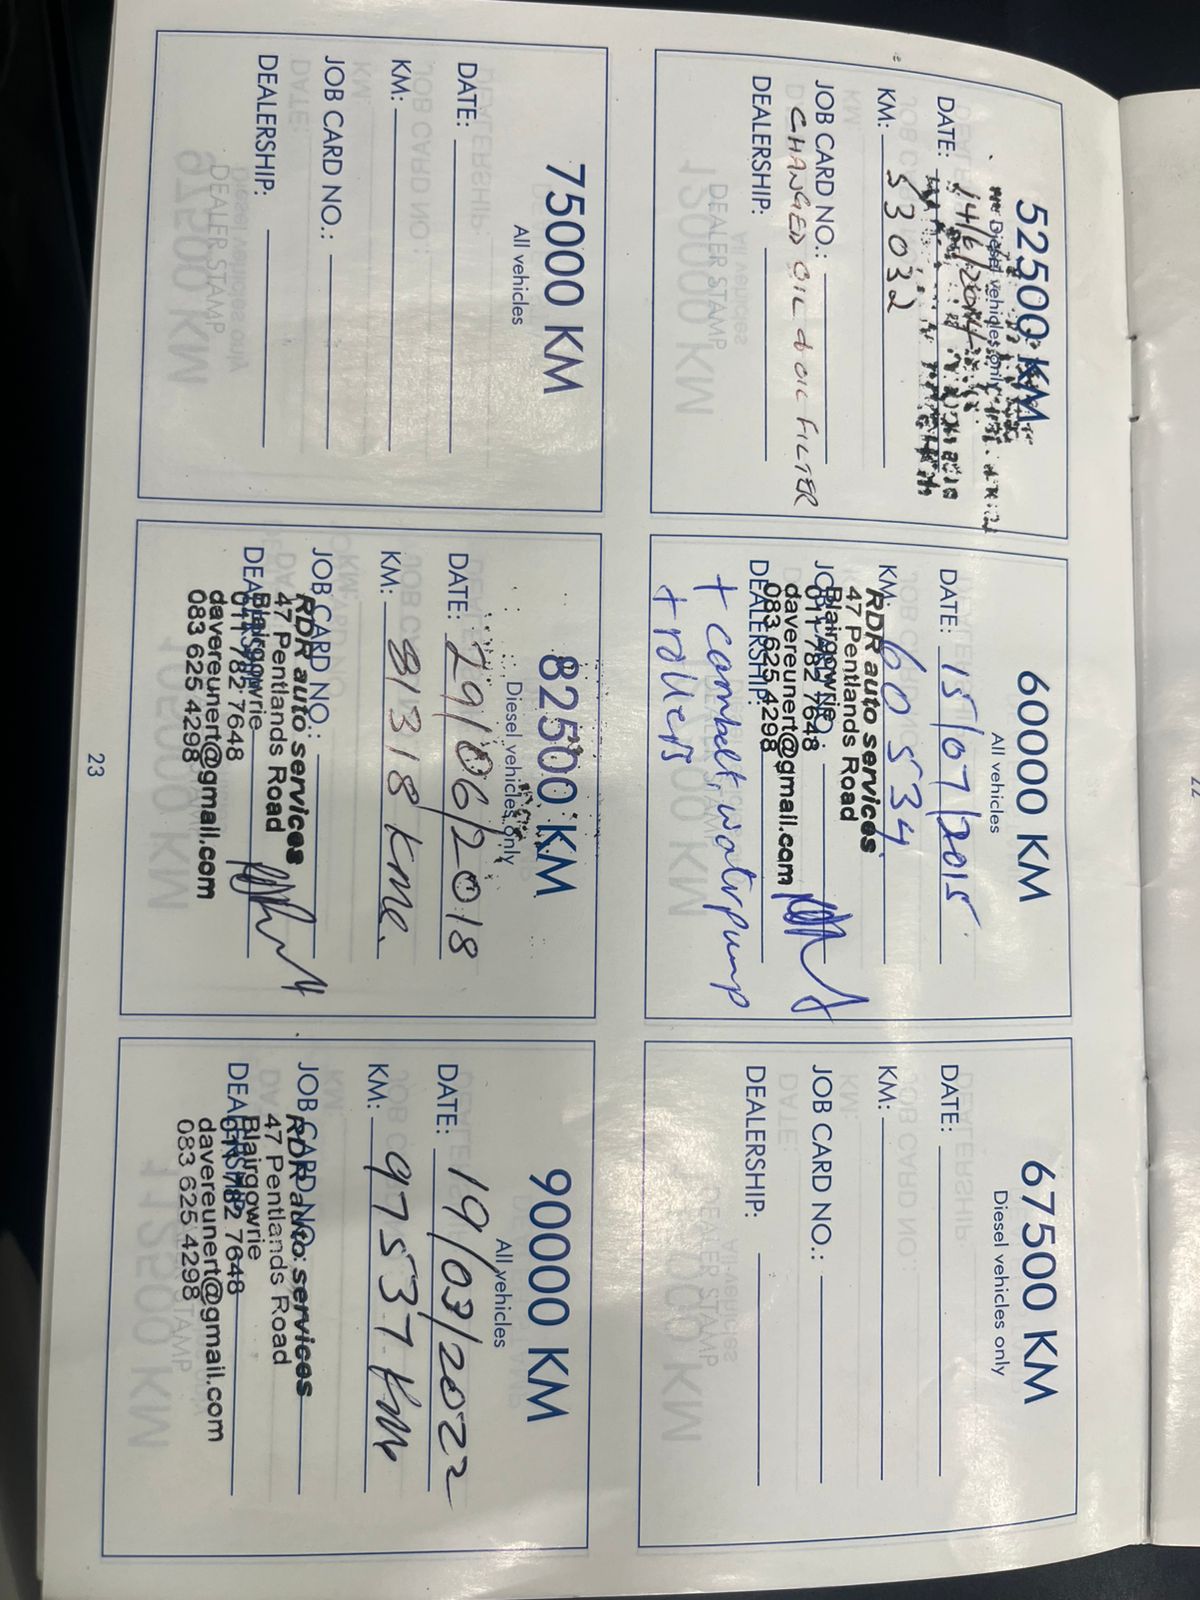 52500 KM
Diesel vehicles only
DATE: 14/6/2014
KM: 53032
JOB CARD NO.:
CHANGED OIL & OIL FILTER
DEALERSHIP:
60000 KM
All vehicles
DATE: 15/07/2015
KM: 60 534
RDR auto services
47 Pentlands Road
JOB CARD NO.:
Blairgowrie
011 782 7648
davereunert@gmail.com
DEALERSHIP:
083 625 4298
+ cambelt, waterpump
+ rollers
67500 KM
Diesel vehicles only
DATE:
KM:
JOB CARD NO.:
DEALERSHIP:
75000 KM
All vehicles
DATE:
KM:
JOB CARD NO.:
DEALERSHIP:
82500 KM
Diesel vehicles only
DATE: 29/06/2018
KM: 81318 kms.
JOB CARD NO.:
RDR auto services
47 Pentlands Road
Blairgowrie
DEALERSHIP:
011 782 7648
davereunert@gmail.com
083 625 4298
90000 KM
All vehicles
DATE: 19/03/2022
KM: 97537 km
JOB CARD NO.:
RDR auto services
47 Pentlands Road
Blairgowrie
DEALERSHIP:
011 782 7648
davereunert@gmail.com
083 625 4298
23
22